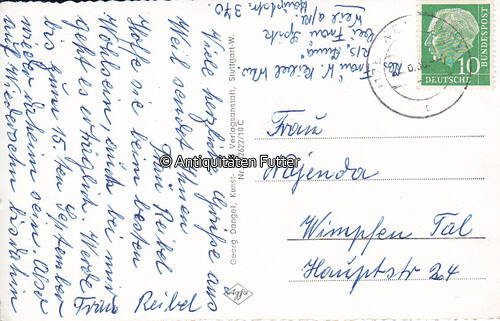 Viele herzliche Grüße aus
Weil sendet Ihnen
Frau Reibel
Hoffe sie beim besten
Wohlsein, auch bei mir
geht es erträglich. Werde
bis zum 15.ten September
wieder daheim sein. Also
auf Wiedersehn bis dahin
Frau Reibel
Frau K. Reibel Wwe
bei Frau
Weil a/Rh
Hauptstr. 370.
Georg Dangel, Kunst- Verlagsanstalt, Stuttgart-W.
Nr. 2622/10 C
© Antiquitäten Futter
10
DEUTSCHE
BUNDESPOST
Frau
Najenda
Wimpfen Tal
Hauptstr 24